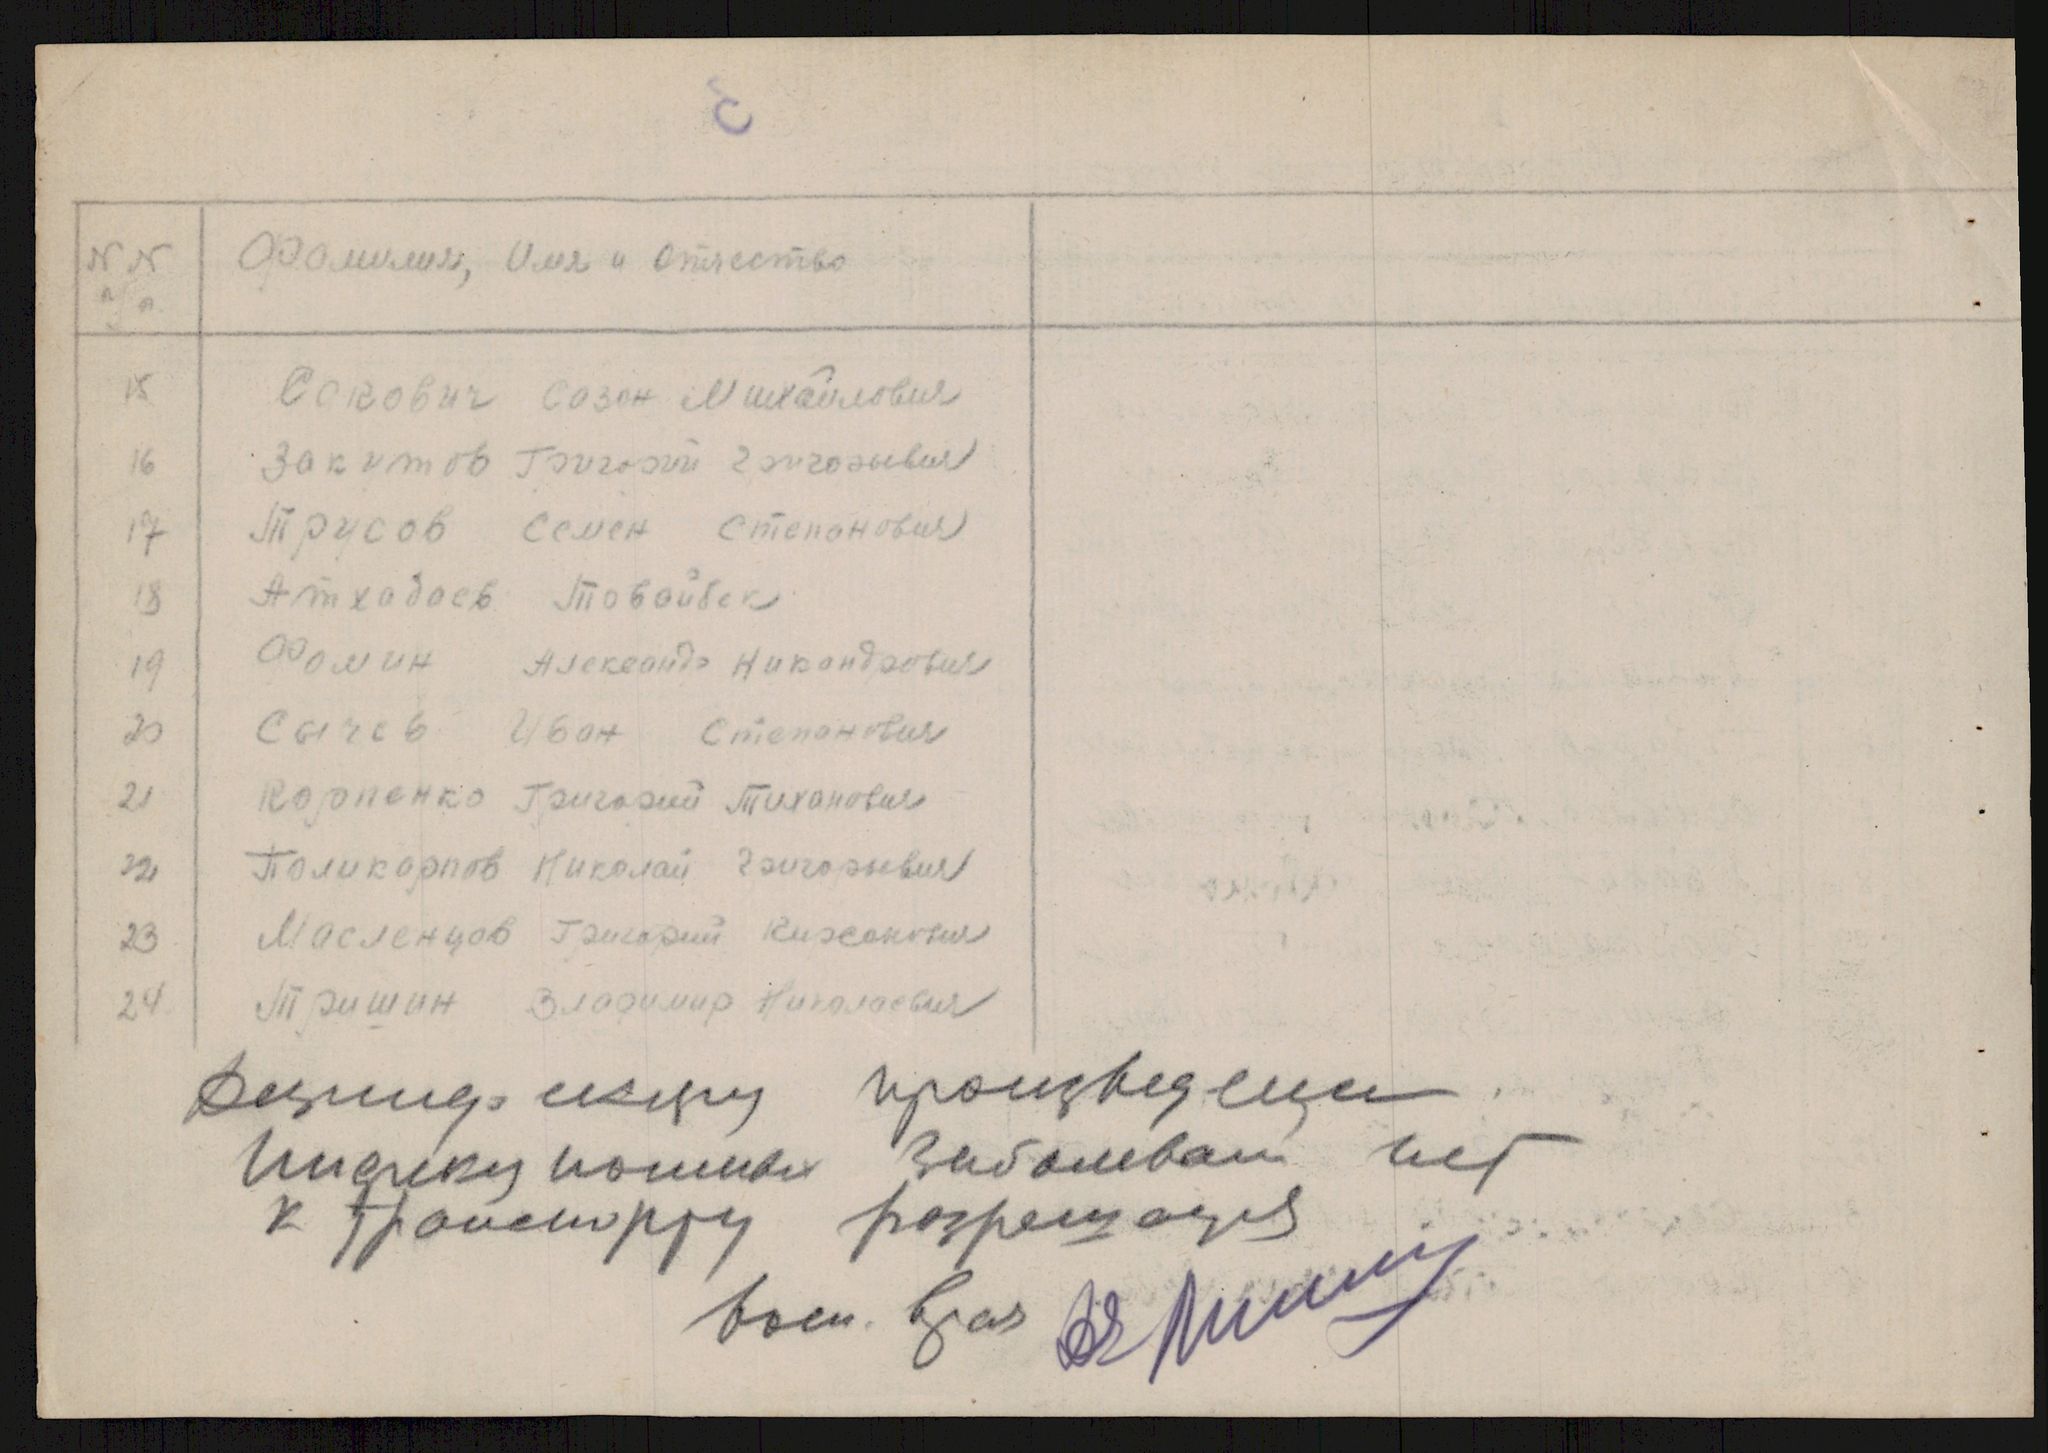 С
NN п/п Фамилия, Имя и Отчество
15 Сакович Сазон Михайлович
16 Закутов Григорий Григорьевич
17 Трусов Семен Степанович
18 Атхадаев Товайбек
19 Фомин Александр Никандрович
20 Сычев Иван Степанович
21 Карпенко Григорий Тиханович
22 Поликарпов Николай Григорьевич
23 Масленцов Григорий
24 Тришин Владимир Николаевич
Дезинфекция произведена.
Инфекционных заболеваний нет
к транспорту разрешается
Воен. врач